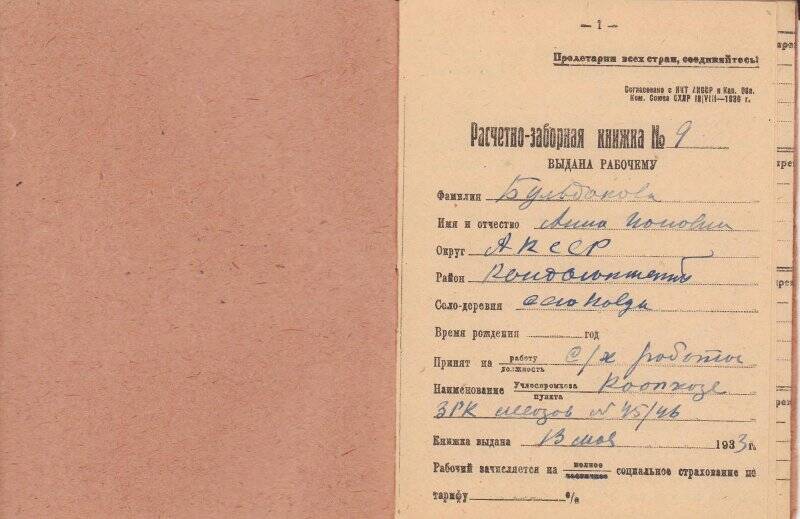 — 1 —
Пролетарии всех стран, соединяйтесь!
Согласовано с НКТ АКССР и Кар. Обл.
Ком. Союза СХЛР 18|VIII—1930 г.
Расчетно-заборная книжка № 9
ВЫДАНА РАБОЧЕМУ
Фамилия Бульдакова
Имя и отчество Анна
Округ АКССР
Район
Село-деревня село
Время рождения год
Принят на работу должность с/х работы
Наименование Учлеспромхоза пункта Коопхозе
ЗРК № 45/46
Книжка выдана 13 мая 1933 г.
Рабочий зачисляется на полное частичное социальное страхование по
тарифу %